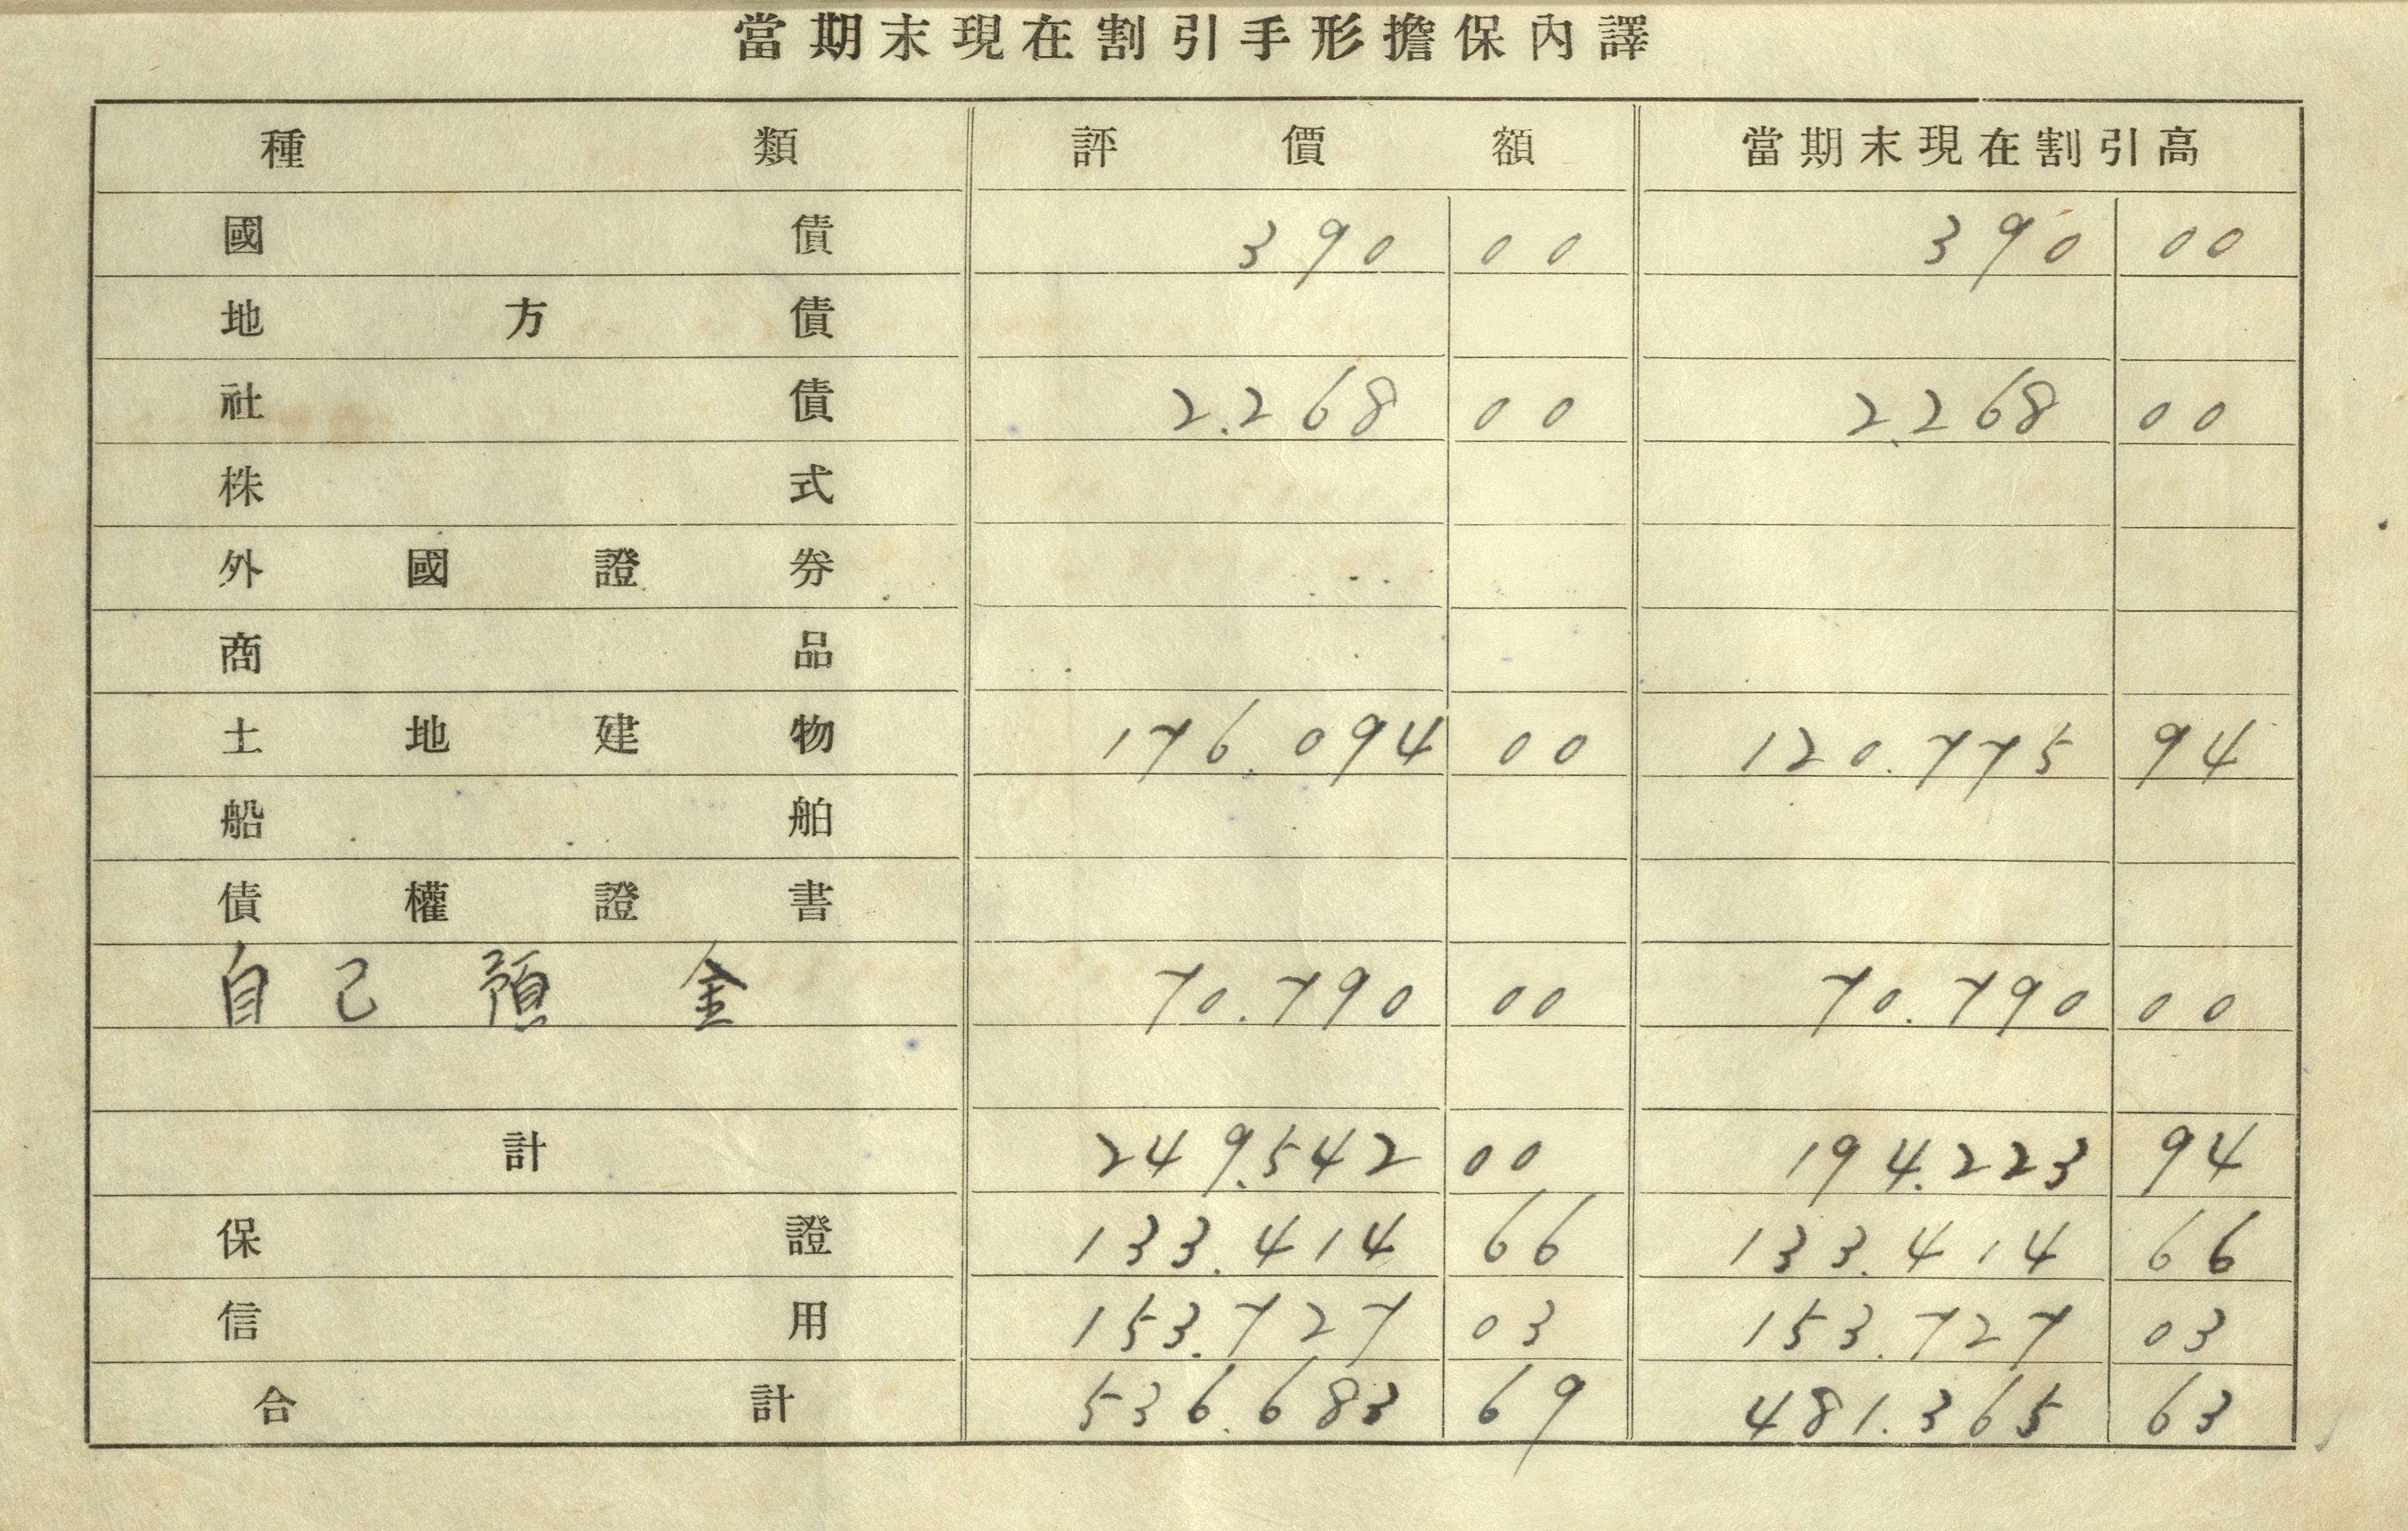 當期末現在割引手形擔保內譯
種類 評價額 當期末現在割引高
國債 390 00 390 00
地方債
社債 2.268 00 2.268 00
株式
外國證券
商品
土地建物 176.094 00 120.775 94
船舶
債權證書
自己預金 70.790 00 70.790 00
計 249.542 00 194.223 94
保證 133.414 66 133.414 66
信用 153.727 03 153.727 03
合計 536.683 69 481.365 63